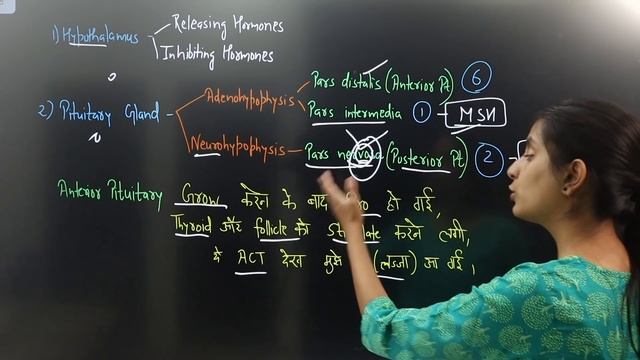 1) Hypothalamus
Releasing Hormones
Inhibiting Hormones
2) Pituitary Gland
Adenohypophysis
Pars distalis (Anterior Pt) 6
Pars intermedia 1 - MSH
Neurohypophysis
Pars nervosa (Posterior Pt) 2
Anterior Pituitary Grow करने के बाद हो गई,
Thyroid और follicle को करने लगी,
ये ACT देख मुझे (लज्जा) आ गई,